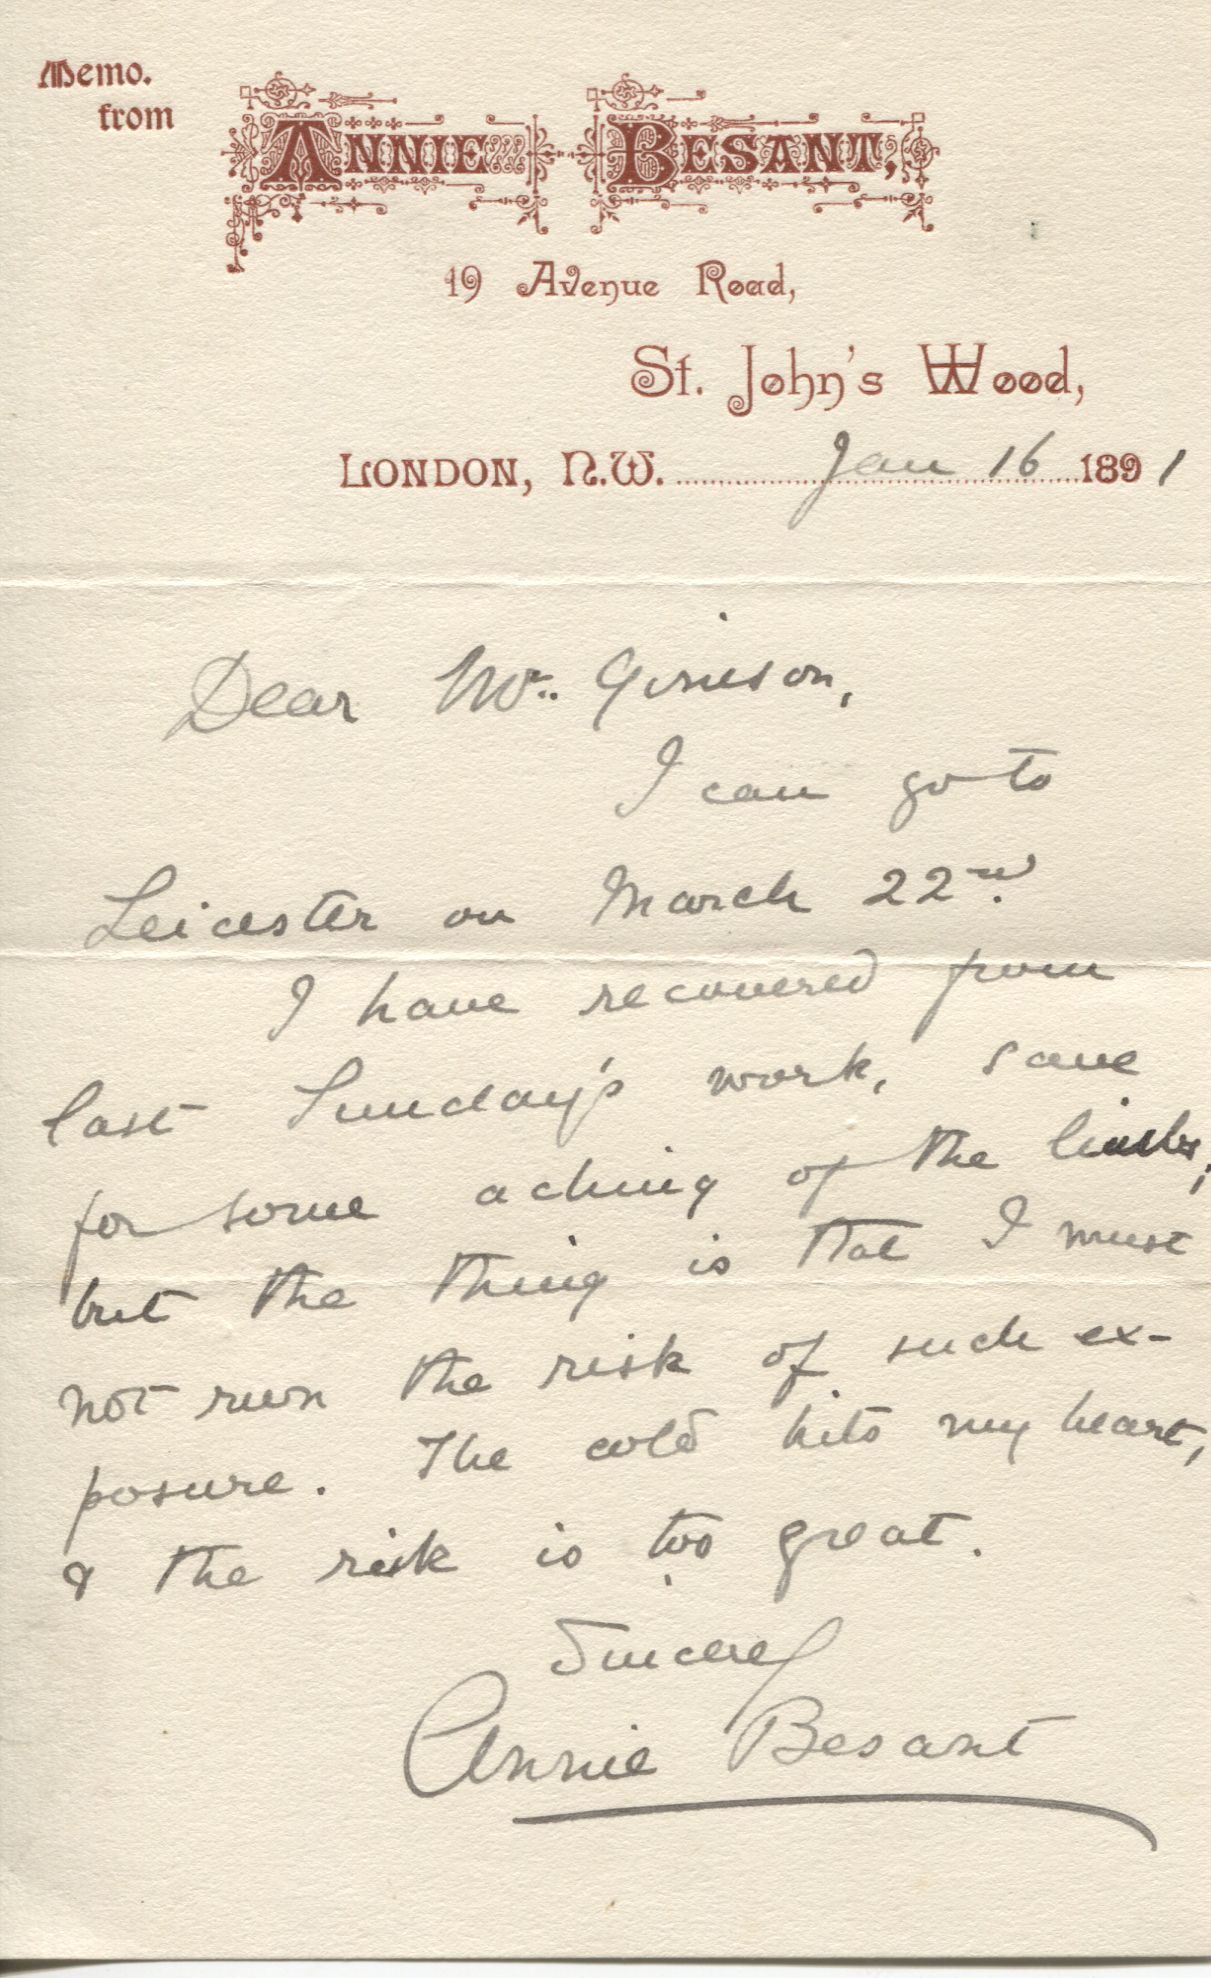 Memo.
from
ANNIE BESANT,
19 Avenue Road,
St. John's Wood,
LONDON, N.W. Jan 16 1891
Dear Mr. Gimson,
I can go to
Leicester on March 22nd.
I have recovered from
last Sunday's work, save
for some aching of the limbs;
but the thing is that I must
not run the risk of such ex-
posure. The cold hits my heart,
& the risk is too great.
Sincerely
Annie Besant